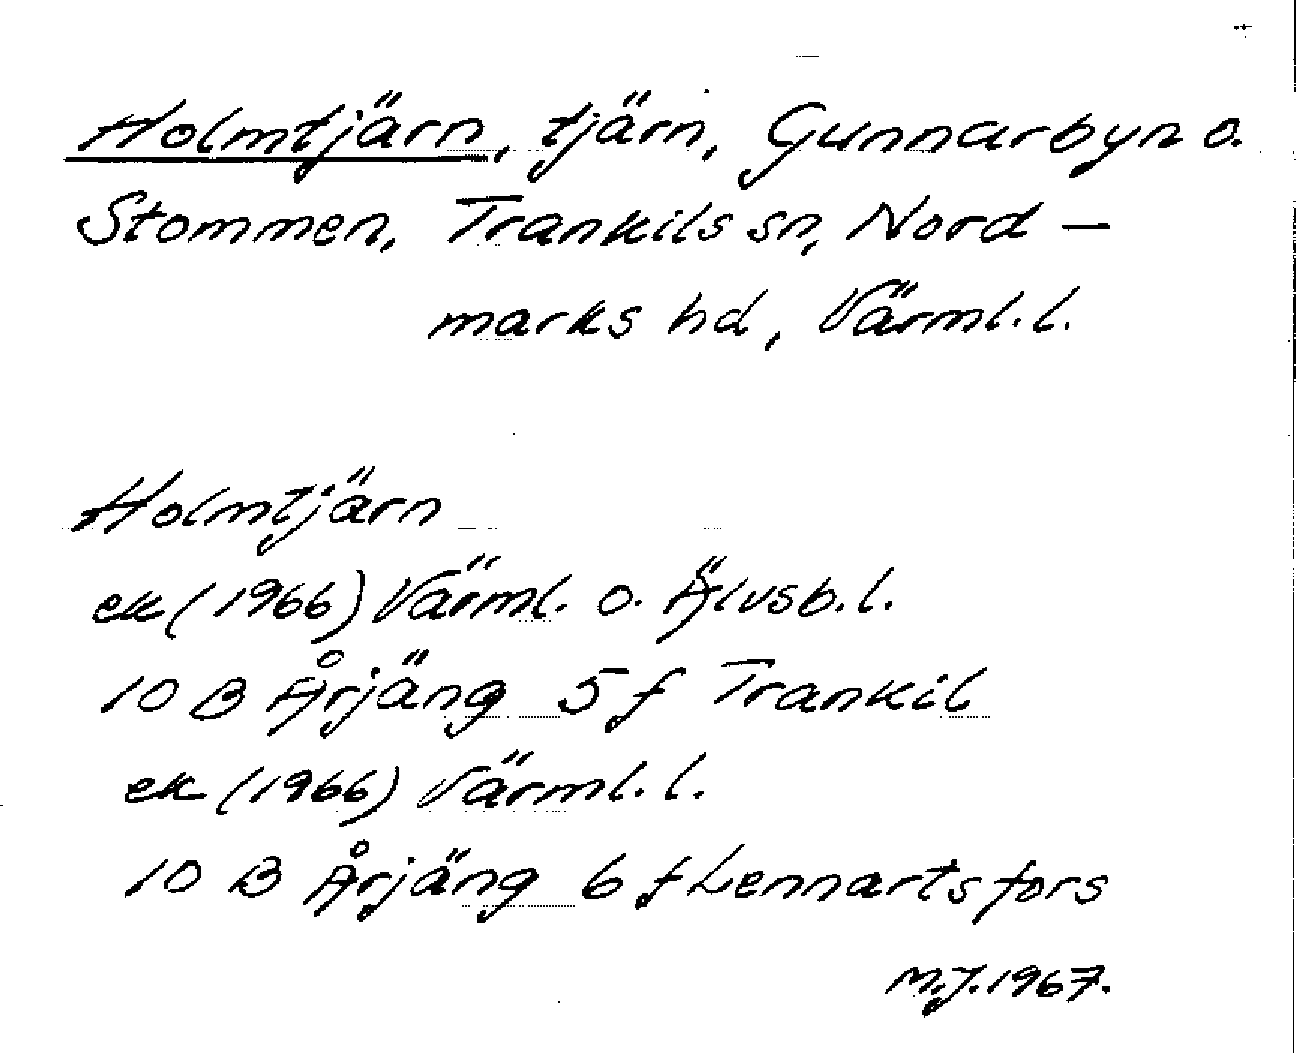 Holmtjärn, tjärn, Gunnarbyn o.
Stommen, Trankils sn, Nord-
marks hd, Värml. l.
Holmtjärn
ek (1966) Värml. o. Älvsb. l.
10 B Årjäng 5 f Trankil
ek (1966) Värml. l.
10 B Årjäng 6 f Lennartsfors
M.J. 1967.